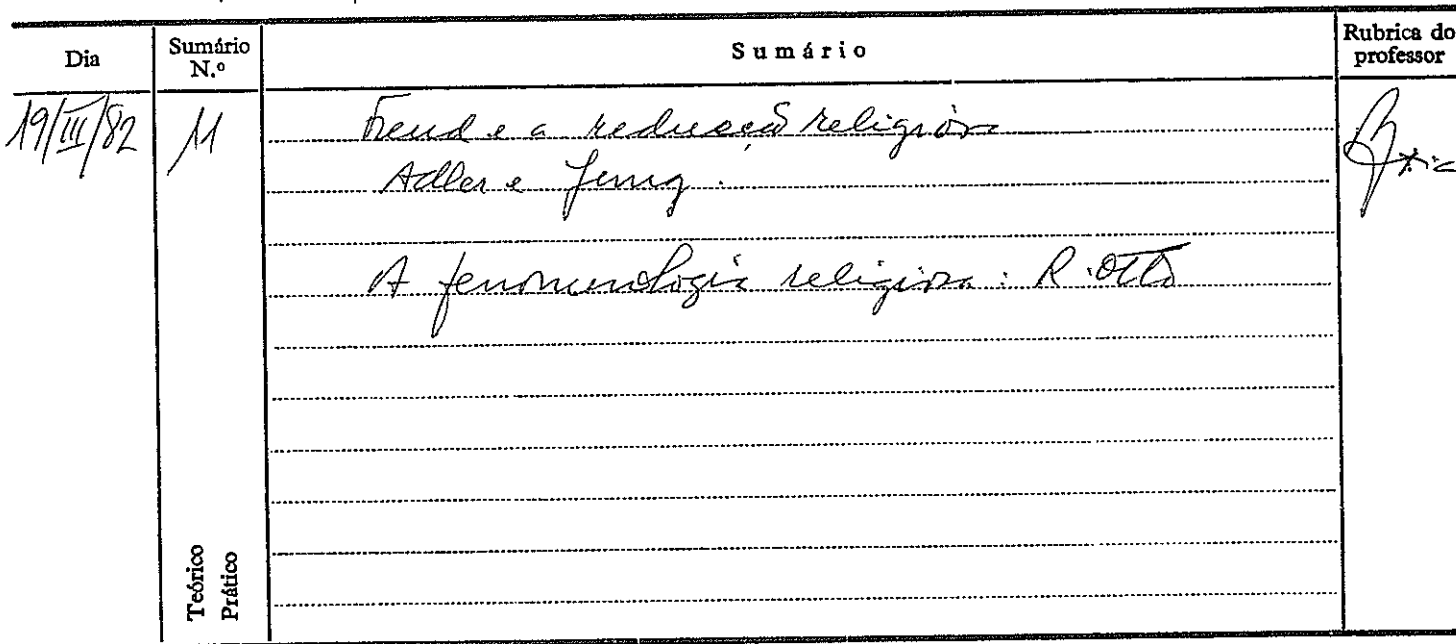 Dia
Sumário N.º
Sumário
Rubrica do professor
19/III/82
11
Freud e a redução religiosa
Adler e Jung.
A fenomenologia religiosa: R. Otto
Teórico
Prático